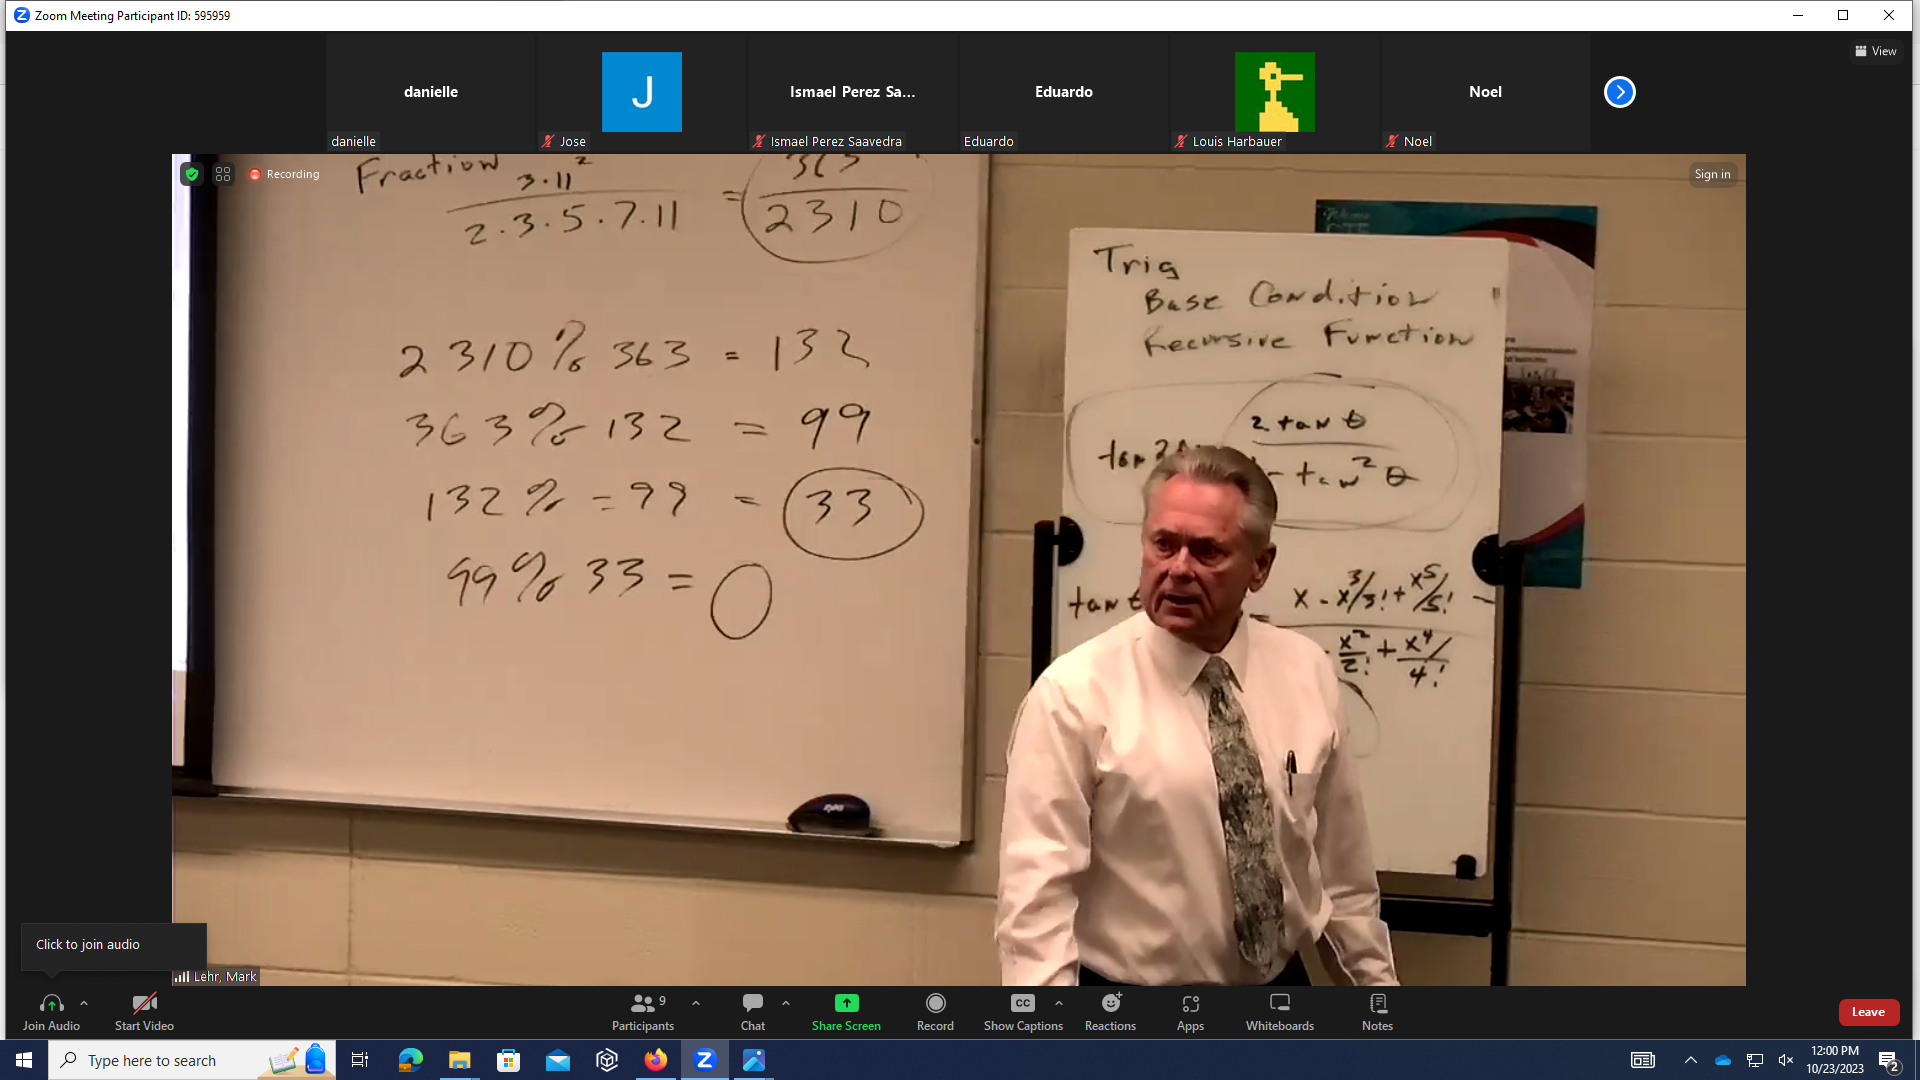 Zoom Meeting Participant ID: 595959
View
danielle
J
Ismael Perez Sa...
Eduardo
Noel
danielle
Jose
Ismael Perez Saavedra
Eduardo
Louis Harbauer
Noel
Recording
Sign in
Fraction
3·11²
2·3·5·7·11
=
363
2310
2310 % 363 = 132
363 % 132 = 99
132 % = 99 = 33
99 % 33 = 0
Trig
Base Condition
Recursive Function
2 tan θ
tan 2
- tan² θ
tan
= x - x³/3! + x⁵/5! -
- x²/2! + x⁴/4!
Click to join audio
Lehr, Mark
Join Audio
Start Video
Participants
9
Chat
Share Screen
CC
Record
Show Captions
Reactions
Apps
Whiteboards
Notes
Leave
Type here to search
12:00 PM
10/23/2023
2